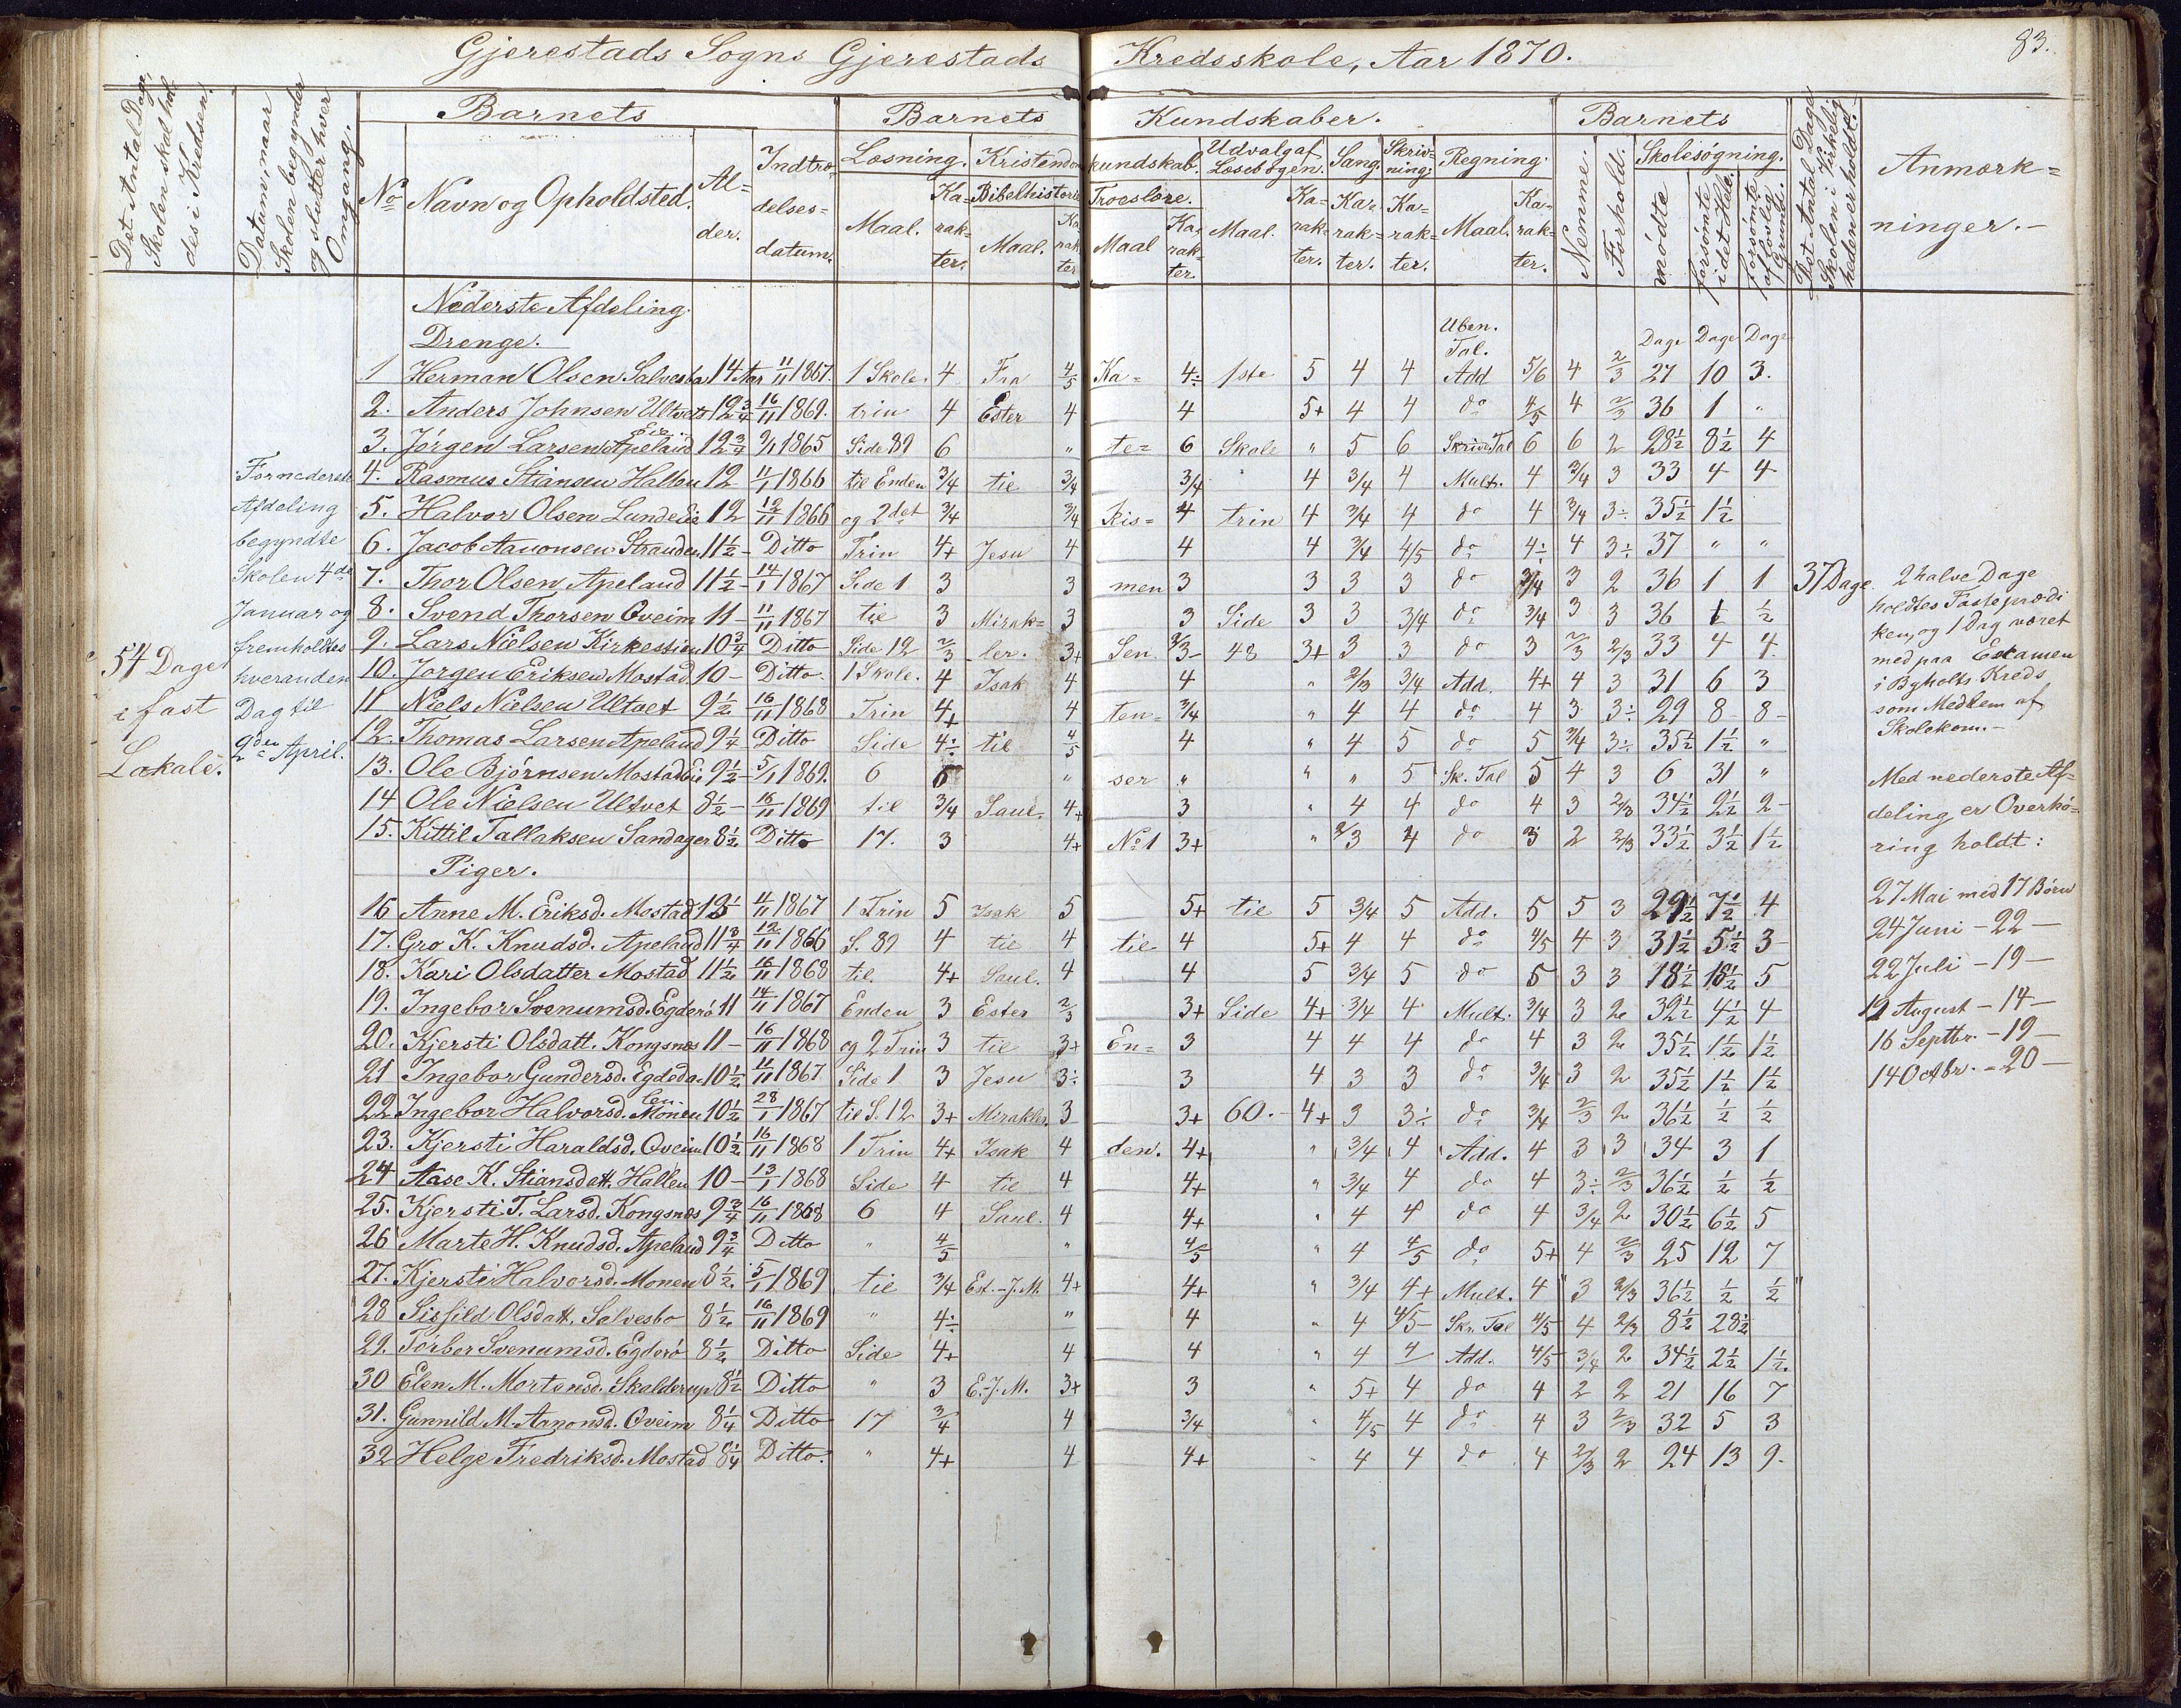 Gjerestads Sogns Gjerestads Kredsskole, Aar 1870.
83.
Det Antal Dage, Skolen skal holdes i Kredsen.
Datum, naar Skolen begynder og slutter hver Omgang.
Barnets
Barnets Kundskaber.
Barnets
Det Antal Dage Skolen i Virkeligheden er holdt.
Anmærkninger.-
No
Navn og Opholdsted.
Alder.
Indtrædelsesdatum.
Læsning. Kristendomskundskab. Udvalg af Læsebogen. Sang. Skrivning. Regning.
Bibelhistorie Troeslære.
Maal. Karakter. Maal. Karakter. Maal Karakter. Maal. Karakter. Karakter. Karakter. Maal. Karakter.
Nemme. Forhold. Skolesøgning.
mødte forsømte i det Hele. forsømte af lovlig Grund.
54 Dage i fast Lokale.
For nederste Afdeling begyndte Skolen 4de Januar og fremholdtes hveranden Dag til 2den April.
Nederste Afdeling.
Drenge.
Uben. Tal.
Dage Dage Dage
1 Herman Olsen Salvesbo 14 Aar 11/11 1867. 1 Skole. 4 Fra 4/5 Ka= 4÷ 1ste 5 4 4 Add 5/6 4 2/3 27 10 3.
2. Anders Johnsen Ultvet 12 3/4 16/11 1869. trin 4 Ester 4 4 5+ 4 4 do 4/5 4 2/3 36 1 "
3. Jørgen Larsen Apeland Eie. 12 3/4 9/1 1865 Side 89 6 " te= 6 Skole " 5 6 Skrive Tal 6 6 2 28 1/2 8 1/2 4
4. Rasmus Stiansen Hallen 12 11/1 1866 til Enden 3/4 til 3/4 3/4 4 3/4 4 Mult. 4 3/4 3 33 4 4
5. Halvor Olsen Lundeeie 12 12/11 1866 og 2det 3/4 3/4 kis= 4 trin 4 3/4 4 do 4 3/4 3÷ 35 1/2 1 1/2
6. Jacob Aanonsen Stranden 11 1/2 - Ditto Trin 4+ Jesu 4 4 4 3/4 4/5 do 4÷ 4 3÷ 37 " "
7. Thor Olsen Apeland 11 1/2 - 14/1 1867 Side 1 3 3 men 3 3 3 3 do 3/4 3 2 36 1 1 37 Dage
8. Svend Thorsen Qveim 11 - 11/11 1867 til 3 Mirak= 3 3 Side 3 3 3/4 do 3/4 3 3 36 1 1/2
9. Lars Nielsen Kirkestien 10 3/4 Ditto Side 12 2/3 ler. 3+ Sen 3/3- 48 3+ 3 3 do 3 2/3 2/3 33 4 4.
10. Jørgen Eriksen Mostad 10 - Ditto. 1 Skole. 4 Isak 4 4 " 2/3 3/4 Add. 4+ 4 3 31 6 3
11 Niels Nielsen Ultvet 9 1/2 16/11 1868 Trin 4+ 4 ten= 3/4 " 4 4 do 4 3 3÷ 29 8 - 8 -
12. Thomas Larsen Apeland 9 1/4 - Ditto Side 4÷ til 4/5 4 " 4 5 do 5 3/4 3÷ 35 1/2 1 1/2 "
13. Ole Bjørnsen Mostad Eie 9 1/2 - 5/1 1869. 6 6 " ser " " " 5 Sk. Tal 5 4 3 6 31 "
14 Ole Nielsen Ultvet 8 1/2 - 16/11 1869 til 3/4 Saul. 4+ 3 " 4 4 do 4 3 2/3 34 1/2 2 1/2 2 -
15. Kittil Tallaksen Sandager 8 1/2 Ditto 17. 3 4+ No 1 3+ " 2/3 4 do 3 2 2/3 33 1/2 3 1/2 1 1/2
Piger.
16 Anne M. Eriksd. Mostad 4/11 1867 1 Trin 5 Isak 5 5+ til 5 3/4 5 Add. 5 5 3 29 1/2 7 1/2 4
17. Gro K. Knudsd. Apeland 11 3/4 12/11 1866 S. 89 4 til 4 til 4 5+ 4 4 do 4/5 4 3 31 1/2 5 1/2 3 -
18. Kari Olsdatter Mostad 11 1/2 16/11 1868 til. 4+ Saul. 4 4 5 3/4 5 do 5 3 3 18 1/2 18 1/2 5
19. Ingebor Svenumsd. Egderø 11 14/11 1867 Enden 3 Ester 2/3 3+ Side 4+ 3/4 4 Mult. 3/4 3 2 32 1/2 4 1/2 4
20. Kjersti Olsdatt. Kongsnæs 11 - 16/11 1868 og 2 Trin 3 til 3+ En= 3 4 4 4 do 4 3 2 35 1/2 1 1/2 1 1/2
21 Ingebor Gundersd. Egdedalen. 10 1/2 11/11 1867 Side 1 3 Jesu 3÷ 3 4 3 3 do 3/4 3 2 35 1/2 1 1/2 1 1/2
22 Ingebor Halvorsd. Monen 10 1/2 28/1 1867 til S. 12 3+ Mirakler 3 3+ 60. - 4+ 3 3÷ do 3/4 2/3 2 36 1/2 1/2 1/2
23. Kjersti Haraldsd. Qveim 10 1/2 16/11 1868 1 Trin 4+ Isak 4 den. 4+ " 3/4 4 Add. 4 3 3 34 3 1
24 Aase K. Stiansdatt. Hallen 10 - 13/1 1868 Side 4 til 4 4+ " 3/4 4 do 4 3÷ 2/3 36 1/2 1/2 1/2
25. Kjersti T. Larsd. Kongsnæs 9 3/4 16/11 1868 6 4 Saul. 4 4+ " 4 4 do 4 3/4 2 30 1/2 6 1/2 5
26 Marte H. Knudsd. Apeland 9 3/4 Ditto " 4/5 " 4/5 " 4 4/5 do 5+ 4 2/3 25 12 7
27. Kjersti Halvorsd. Monen 8 1/2 5/1 1869 til 3/4 Est. - J. M. 4+ 4+ " 3/4 4+ Mult. 4 3 2/3 36 1/2 1/2 1/2
28 Sissild Olsdatt. Salvesbo 8 1/2 16/11 1869 " 4÷ " 4 " 4 4/5 Skr. Tal 4/5 4 2/3 8 1/2 28 1/2
29. Torbor Svenumsd. Egderø 8 1/2 Ditto Side 4+ 4 4 " 4 4 Add. 4/5 3/4 2 34 1/2 2 1/2 1 1/2.
30 Elen M. Mortensd. Skalderup 8 1/2 Ditto " 3 E. J. M. 3+ 3 " 5+ 4 do 4 2 2 21 16 7
31. Gunnild M. Aanonsd. Qveim 8 1/4 Ditto 17 3/4 4 3/4 " 4/5 4 do 4 3 2/3 32 5 3
32 Helge Fredriksd. Mostad 8 1/4 Ditto. " 4+ 4 4+ " 4 4 do 4 2/3 2 24 13 9.
2 halve Dage
holdtes Fasteprædi
ken, og 1 Dag været
med paa Examen
i Byholts Kreds
som Medlem af
Skolekom. -
Med nederste Af=
deling er Overhø=
ring holdt:
27 Mai med 17 Børn
24 Juni - 22 -
22 Juli - 19 -
19 August - 14 -
16 Septbr. - 19 -
14 Octbr. - 20 -